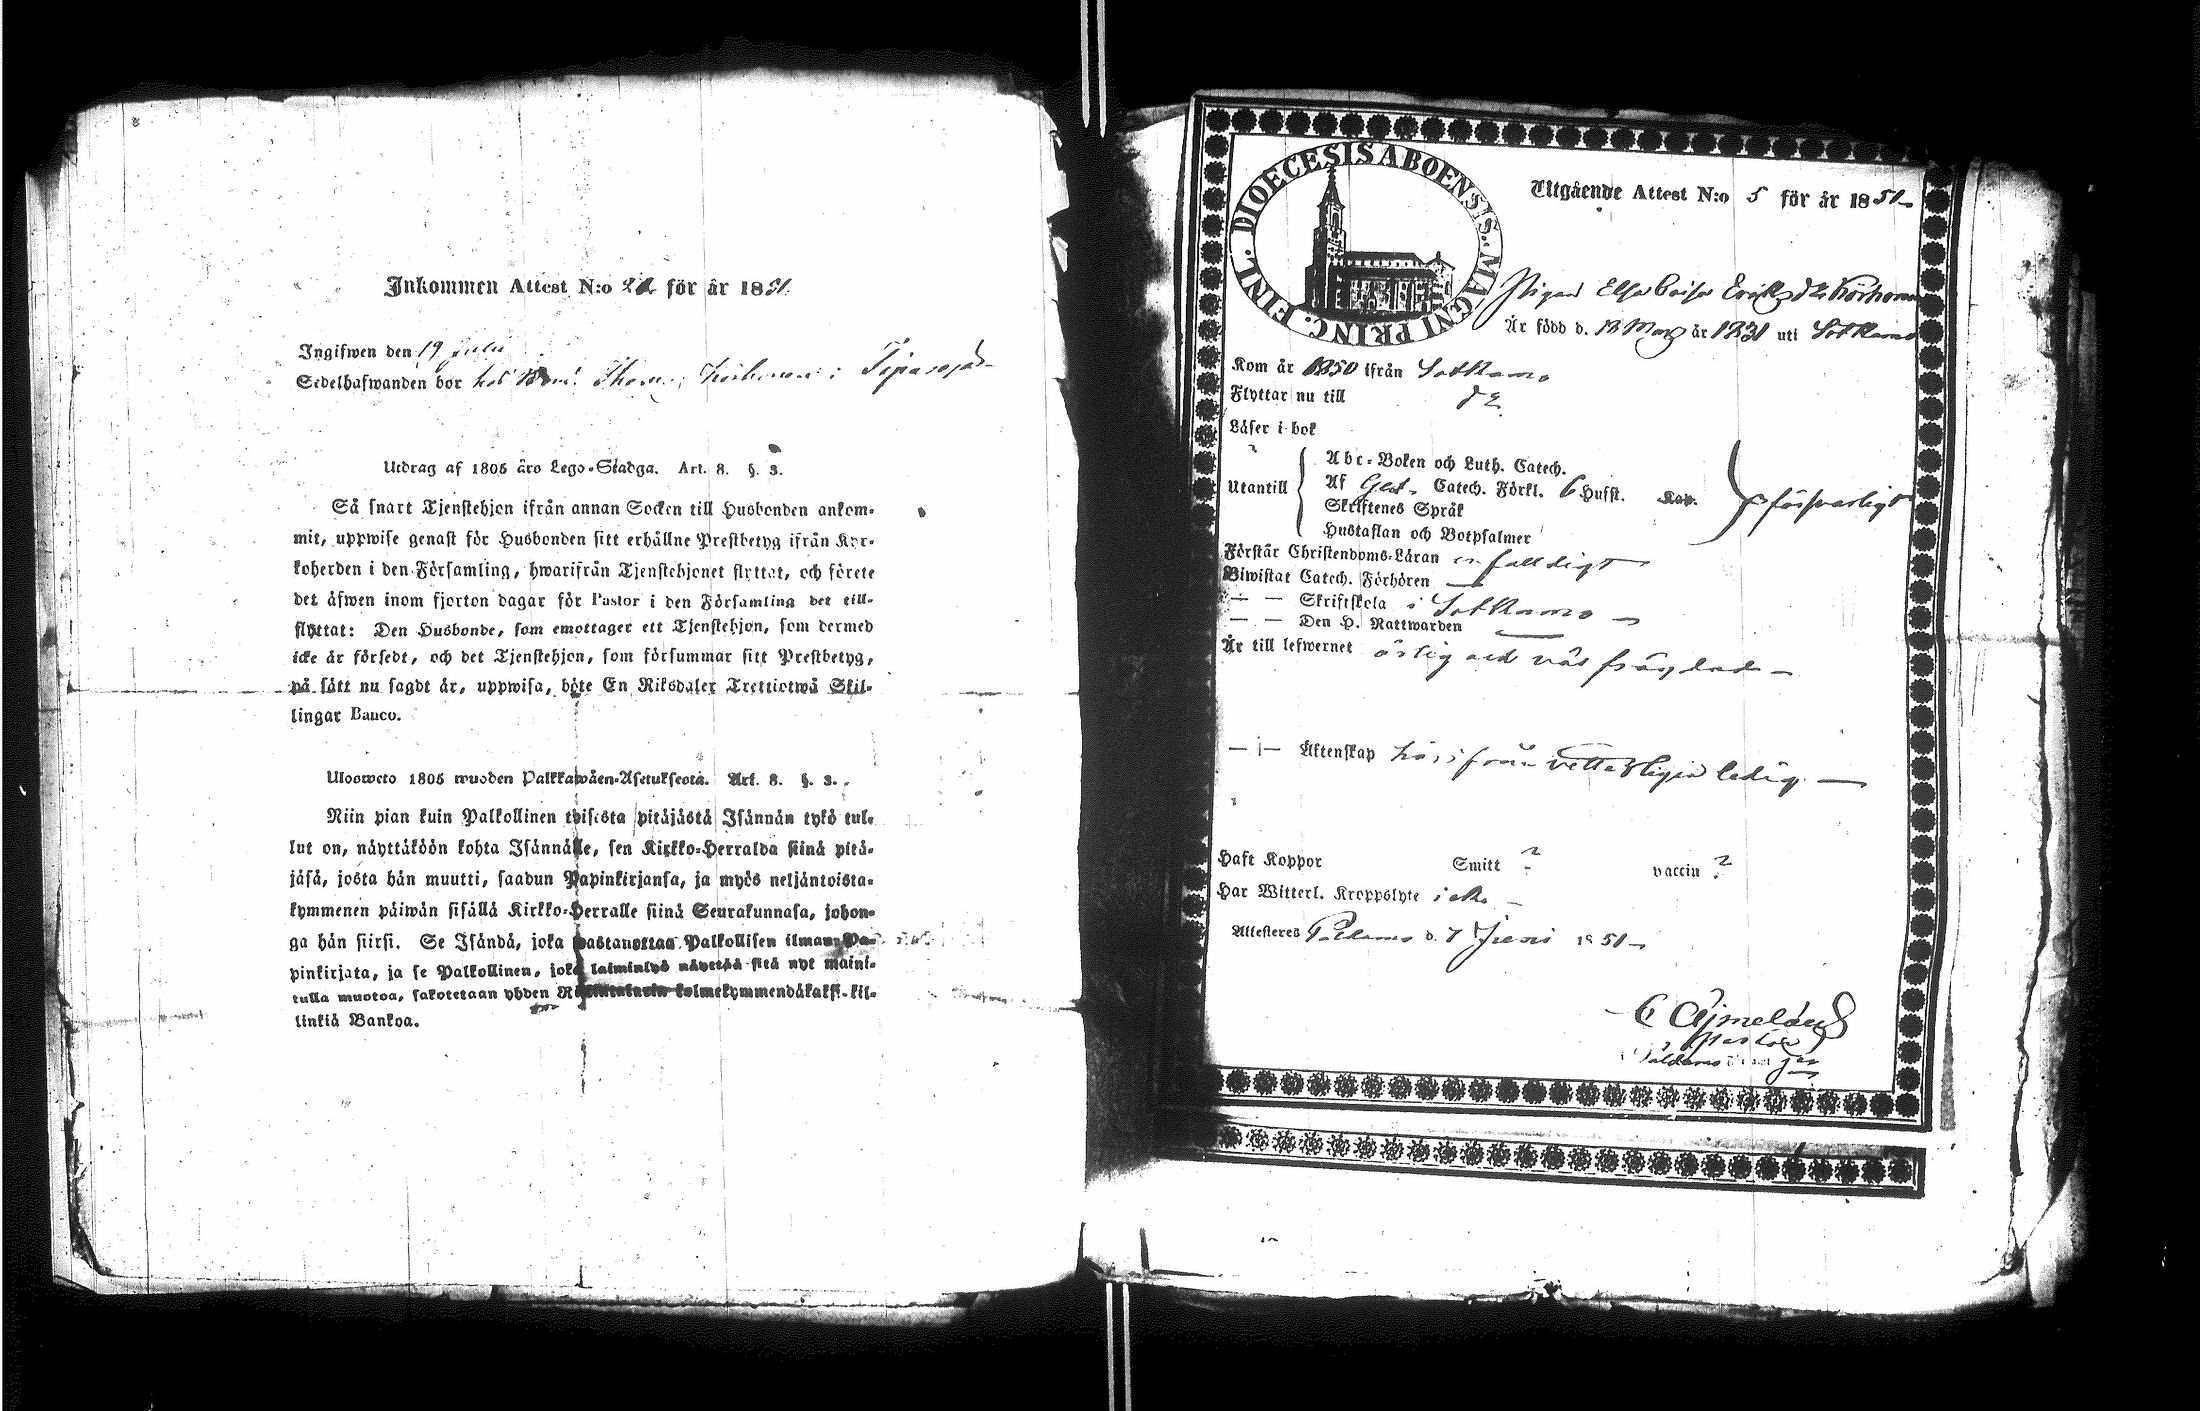 Inkommen Attest N:o 22 för år 1851.
Ingifwen den 19 Julii
Sedelhafwanden bor hos Thomas Korhonen i Tipasoja
Utdrag af 1805 års Lego-Stadga. Art. 8. §. 3.
Så snart Tjenstehjon ifrån annan Socken till Husbonden ankom-
mit, uppwise genast för Husbonden sitt erhållne Prestbetyg ifrån Kyr-
koherden i den Församling, hwarifrån Tjenstehjonet flyttat, och förete
det äfwen inom fjorton dagar för Pastor i den Församling det till-
flyttat: Den Husbonde, som emottager ett Tjenstehjon, som dermed
icke är försedt, och det Tjenstehjon, som försummar sitt Prestbetyg,
på sätt nu sagdt är, uppwisa, böte En Riksdaler Trettiotwå Skil-
lingar Banco.
Ulosweto 1805 wuoden Palkkawäen-Asetuksesta. Art. 8. §. 3.
Niin pian kuin Palkollinen toisesta pitäjästä Isännän tykö tul-
lut on, näyttäköön kohta Isännälle, sen Kirkko-Herralda siinä pitä-
jäsä, josta hän muutti, saadun Papinkirjansa, ja myös neljäntoista-
kymmenen päiwän sisällä Kirkko-Herralle siinä Seurakunnasa, johon-
ga hän siirsi. Se Isändä, joka wastanottaa Palkollisen ilman Pa-
pinkirjata, ja se Palkollinen, joka laiminlyö näyttää sitä nyt maini-
tulla muotoa, sakotetaan yhden kolmekymmendäkaksi kil-
linkiä Bankoa.
DIOECESIS ABOENSIS. MAGNI PRINC. FINL.
Utgående Attest N:o 5 för år 1851
Pigan Elsa Caisa Ericsdr Korhonen
Är född d. 13 Mars år 1831 uti Sotkamo
Kom år 1850 ifrån Sotkamo
Flyttar nu till do
Läser i bok
Utantill
Abc-Boken och Luth. Catech.
Af Catech. Förkl. 6 Hufst. Kap.
Skriftenes Språk
Hustaflan och Botpsalmer
försvarligt
Förstår Christendoms-Läran enfalldigt
Biwistat Catech. Förhören —
— — Skriftskola i Sotkamo
— — Den H. Nattwarden —
Är till lefwernet ärlig och väl frägdad
— — Äktenskap härifrån vetterligen ledig
Haft Koppor Smitt ? vaccin ?
Har Witterl. Kroppslyte icke
Attesteres Paldamo d. 7 Junii 1851
C Ajmelæus
Pastor